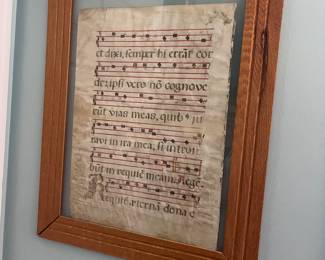 et dixi, semper hi errāt cor
de: ipsi vero nō cognove
rūt vias meas, quib⁹ ju
ravi in ira mea, si intro i
būt in requiē meam. ege
Requiē æternā dona e